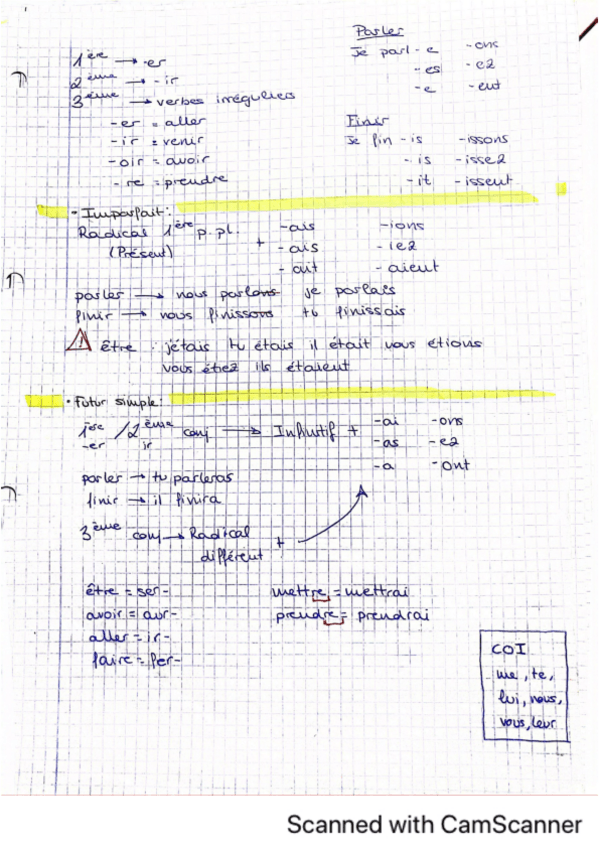 1ère → -er
2ème → -ir
3ème → verbes irréguliers
-er = aller
-ir = venir
-oir = avoir
-re = prendre
Parler
Je parl-e -ons
-es -ez
-e -ent
Finir
Je fin -is -issons
-is -issez
-it -issent
• Imparfait:
Radical 1ère p.pl. + -ais -ions
(Présent) -ais -iez
-ait -aient
parler → nous parlons je parlais
finir → nous finissons tu finissais
être : j'étais tu étais il était nous étions
vous étiez ils étaient
• Futur simple:
1ère / 2ème conj → Infinitif + -ai -ons
-er ir -as -ez
-a -ont
parler → tu parleras
finir → il finira
3ème conj → Radical
différent +
être = ser-
avoir = aur-
aller = ir-
faire = fer-
mettre = mettrai
prendre = prendrai
COI
me, te,
lui, nous,
vous, leur
Scanned with CamScanner